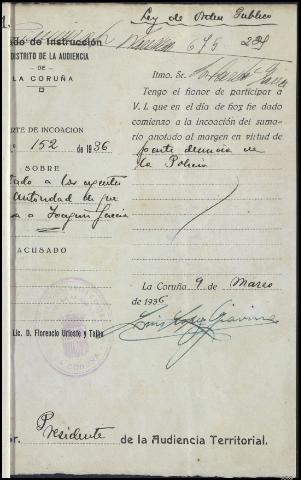 1.
Ley de Orden Publico
675
ado de Instrucción
DISTRITO DE LA AUDIENCIA
DE
LA CORUÑA
ARTE DE INCOACION
152 de 1936
SOBRE
tado a los agentes
autoridad de que
a a Joaquin Garcia
ACUSADO
Lic. D. Florencio Urioste y
Itmo. Sr.
Tengo el honor de participar a
V. I. que en el día de hoy he dado
comienzo a la incoación del suma-
rio anotado al margen en virtud de
parte denuncia de
la Policia
La Coruña 9 de Marzo
de 1936
or. Presidente de la Audiencia Territorial.